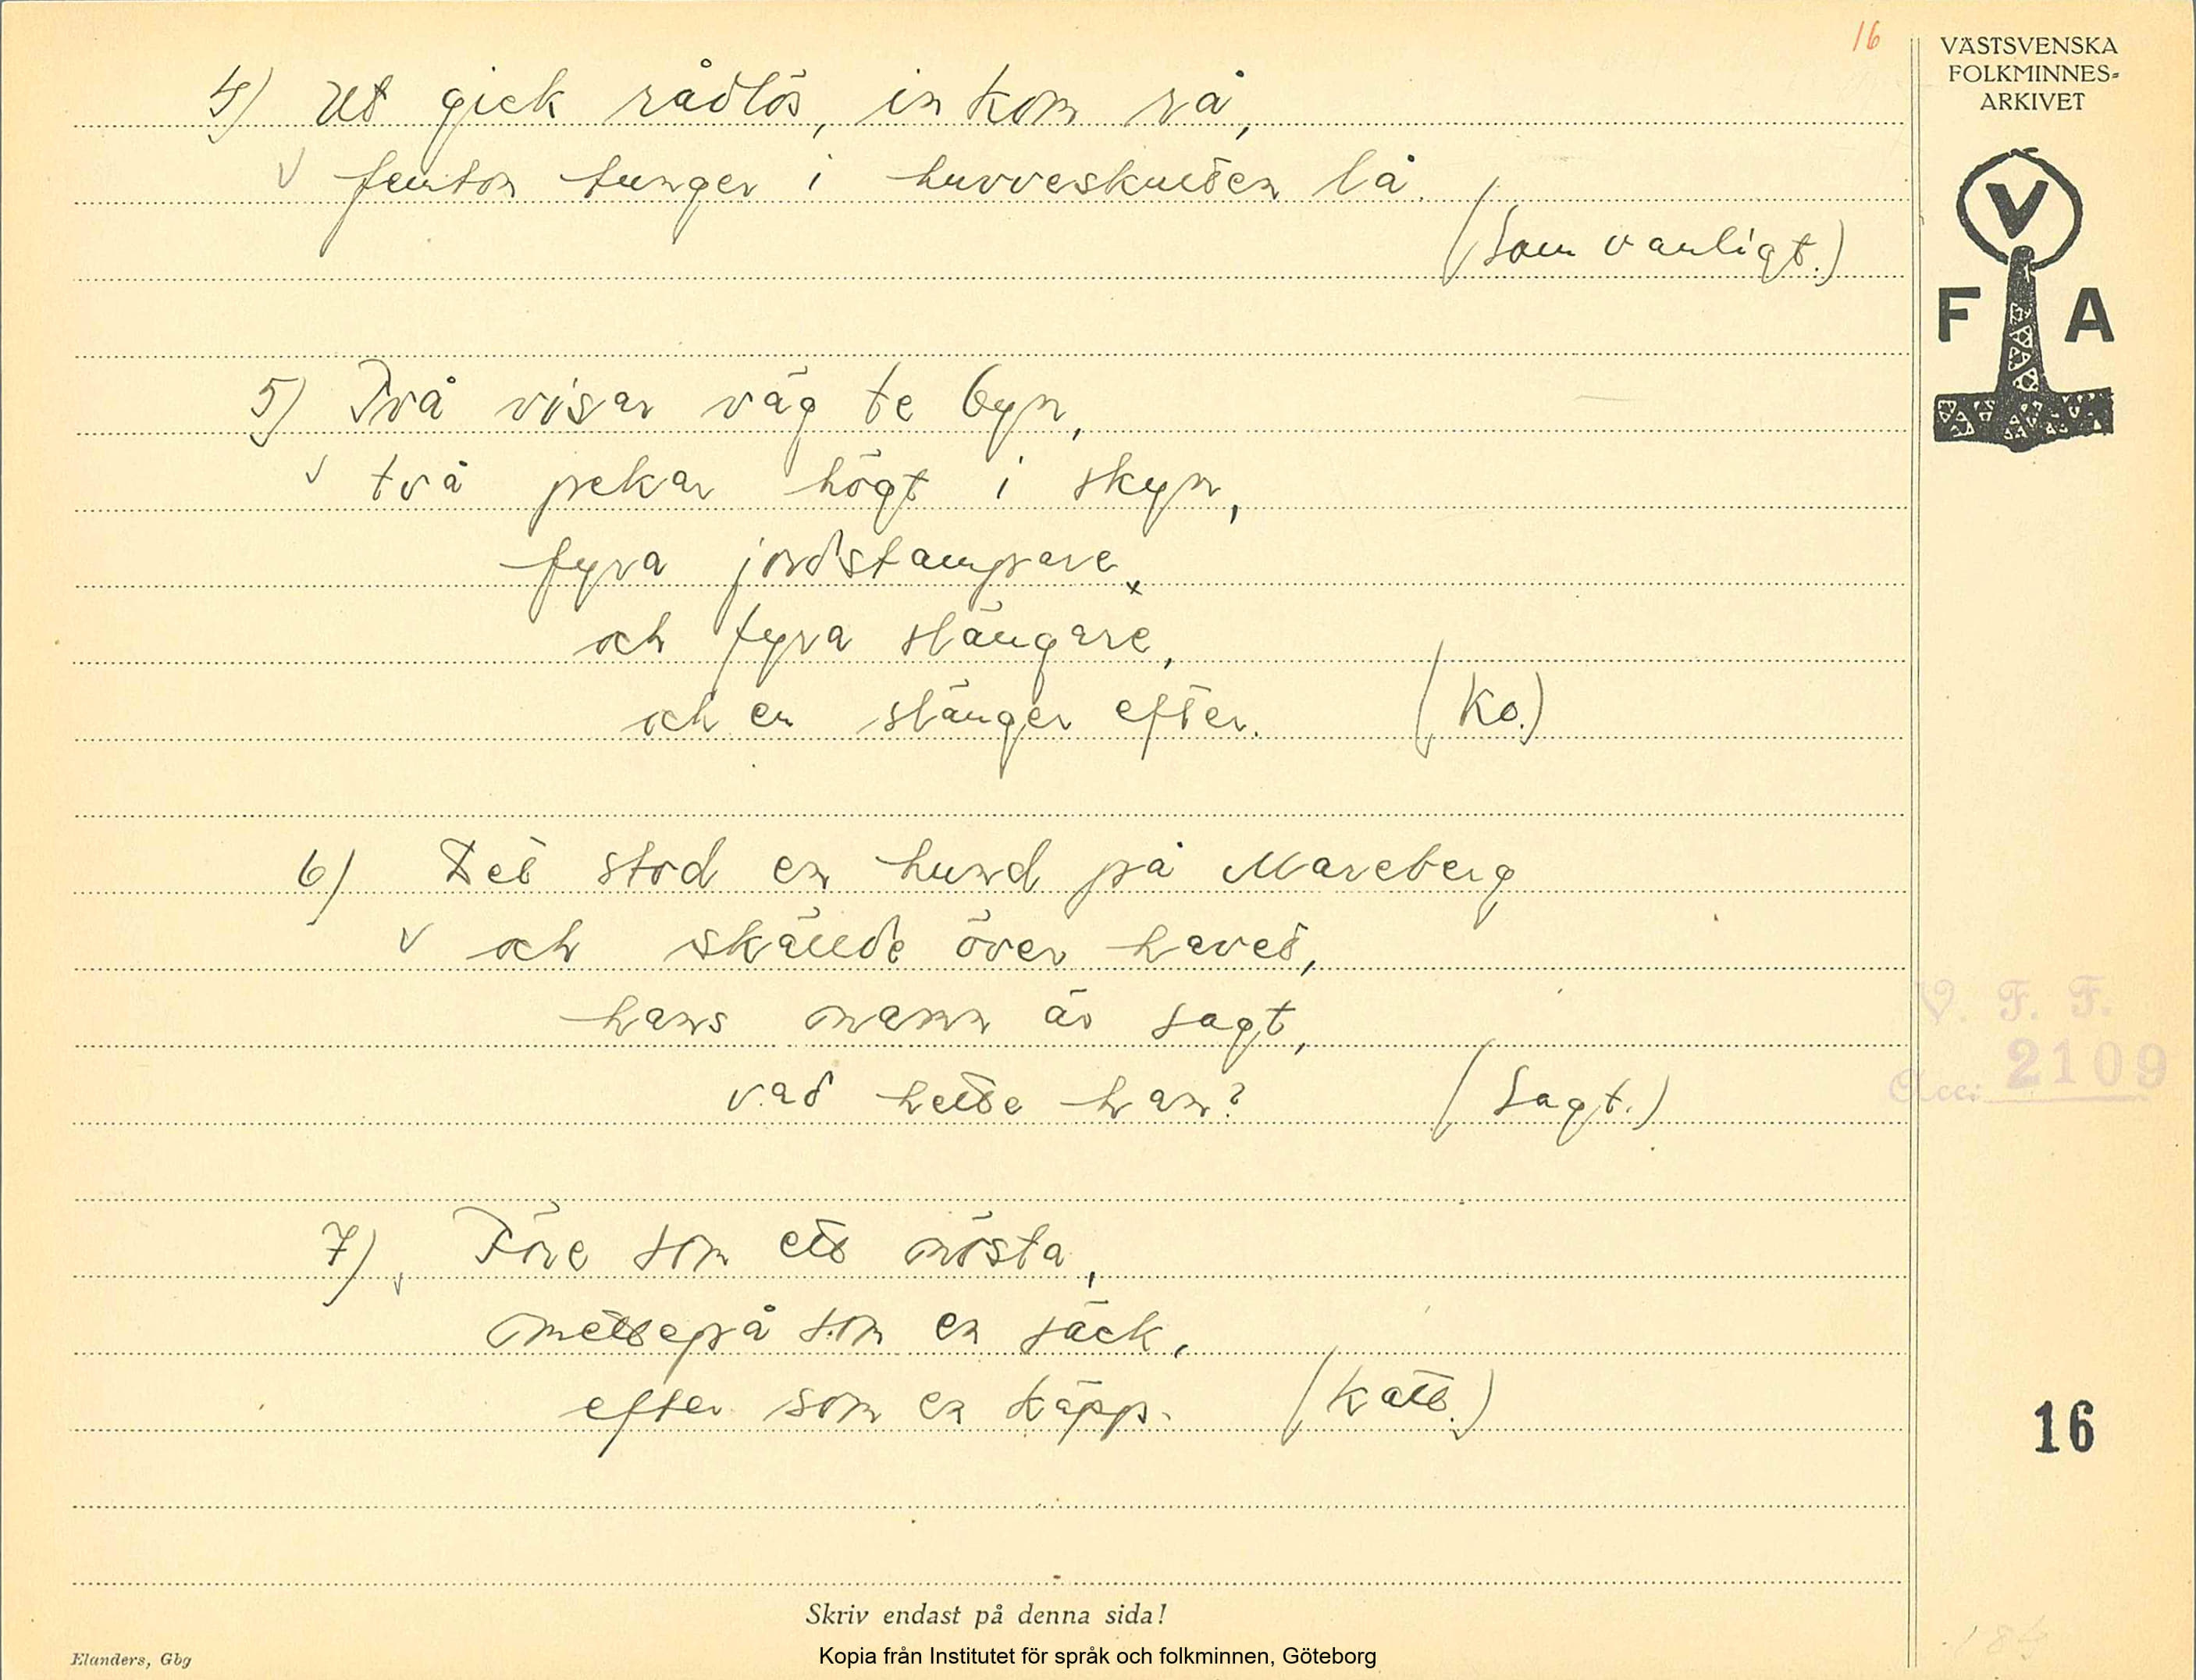 16
VÄSTSVENSKA
FOLKMINNES-
ARKIVET
V
F A
4) Ut gick rådlös, in kom rå,
v femton tunger i huvveskulten lå.
(Som vanligt.)
5) Två visar väg te byn,
v två pekar högt i skyn,
fyra jordstampare
och fyra slängare,
och en slänger efter. (Ko.)
6) Det stod en hund på Mareberg
v och skällde över havet,
hans namn är sagt,
vad hette han? (Sagt.)
V. F. F.
Acc: 2109
7) v Före som ett nösta,
mettepå som en säck,
efter som en käpp. (Katt.)
16
Skriv endast på denna sida!
Elanders, Gbg
Kopia från Institutet för språk och folkminnen, Göteborg